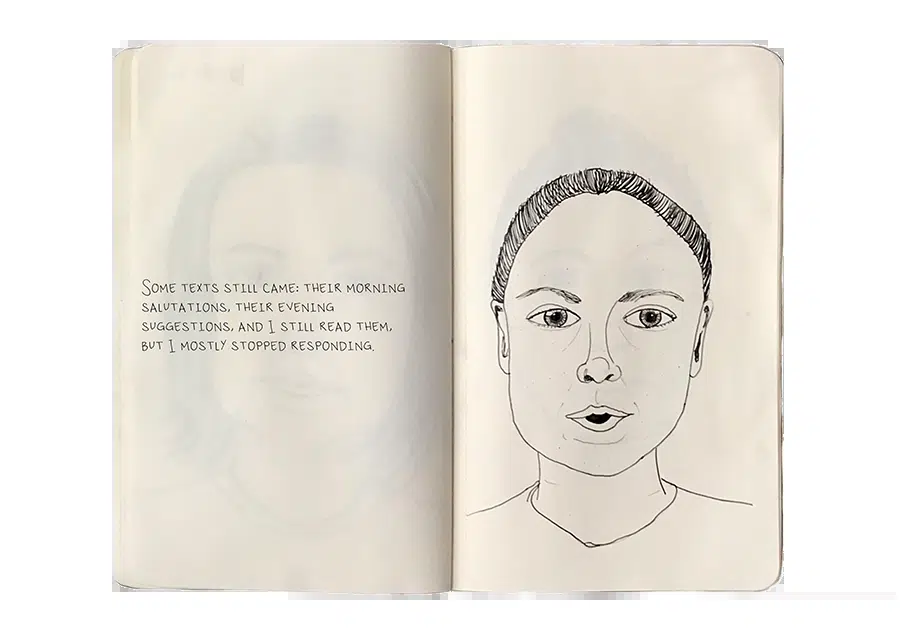 SOME TEXTS STILL CAME: THEIR MORNING
SALUTATIONS, THEIR EVENING
SUGGESTIONS, AND I STILL READ THEM,
BUT I MOSTLY STOPPED RESPONDING.